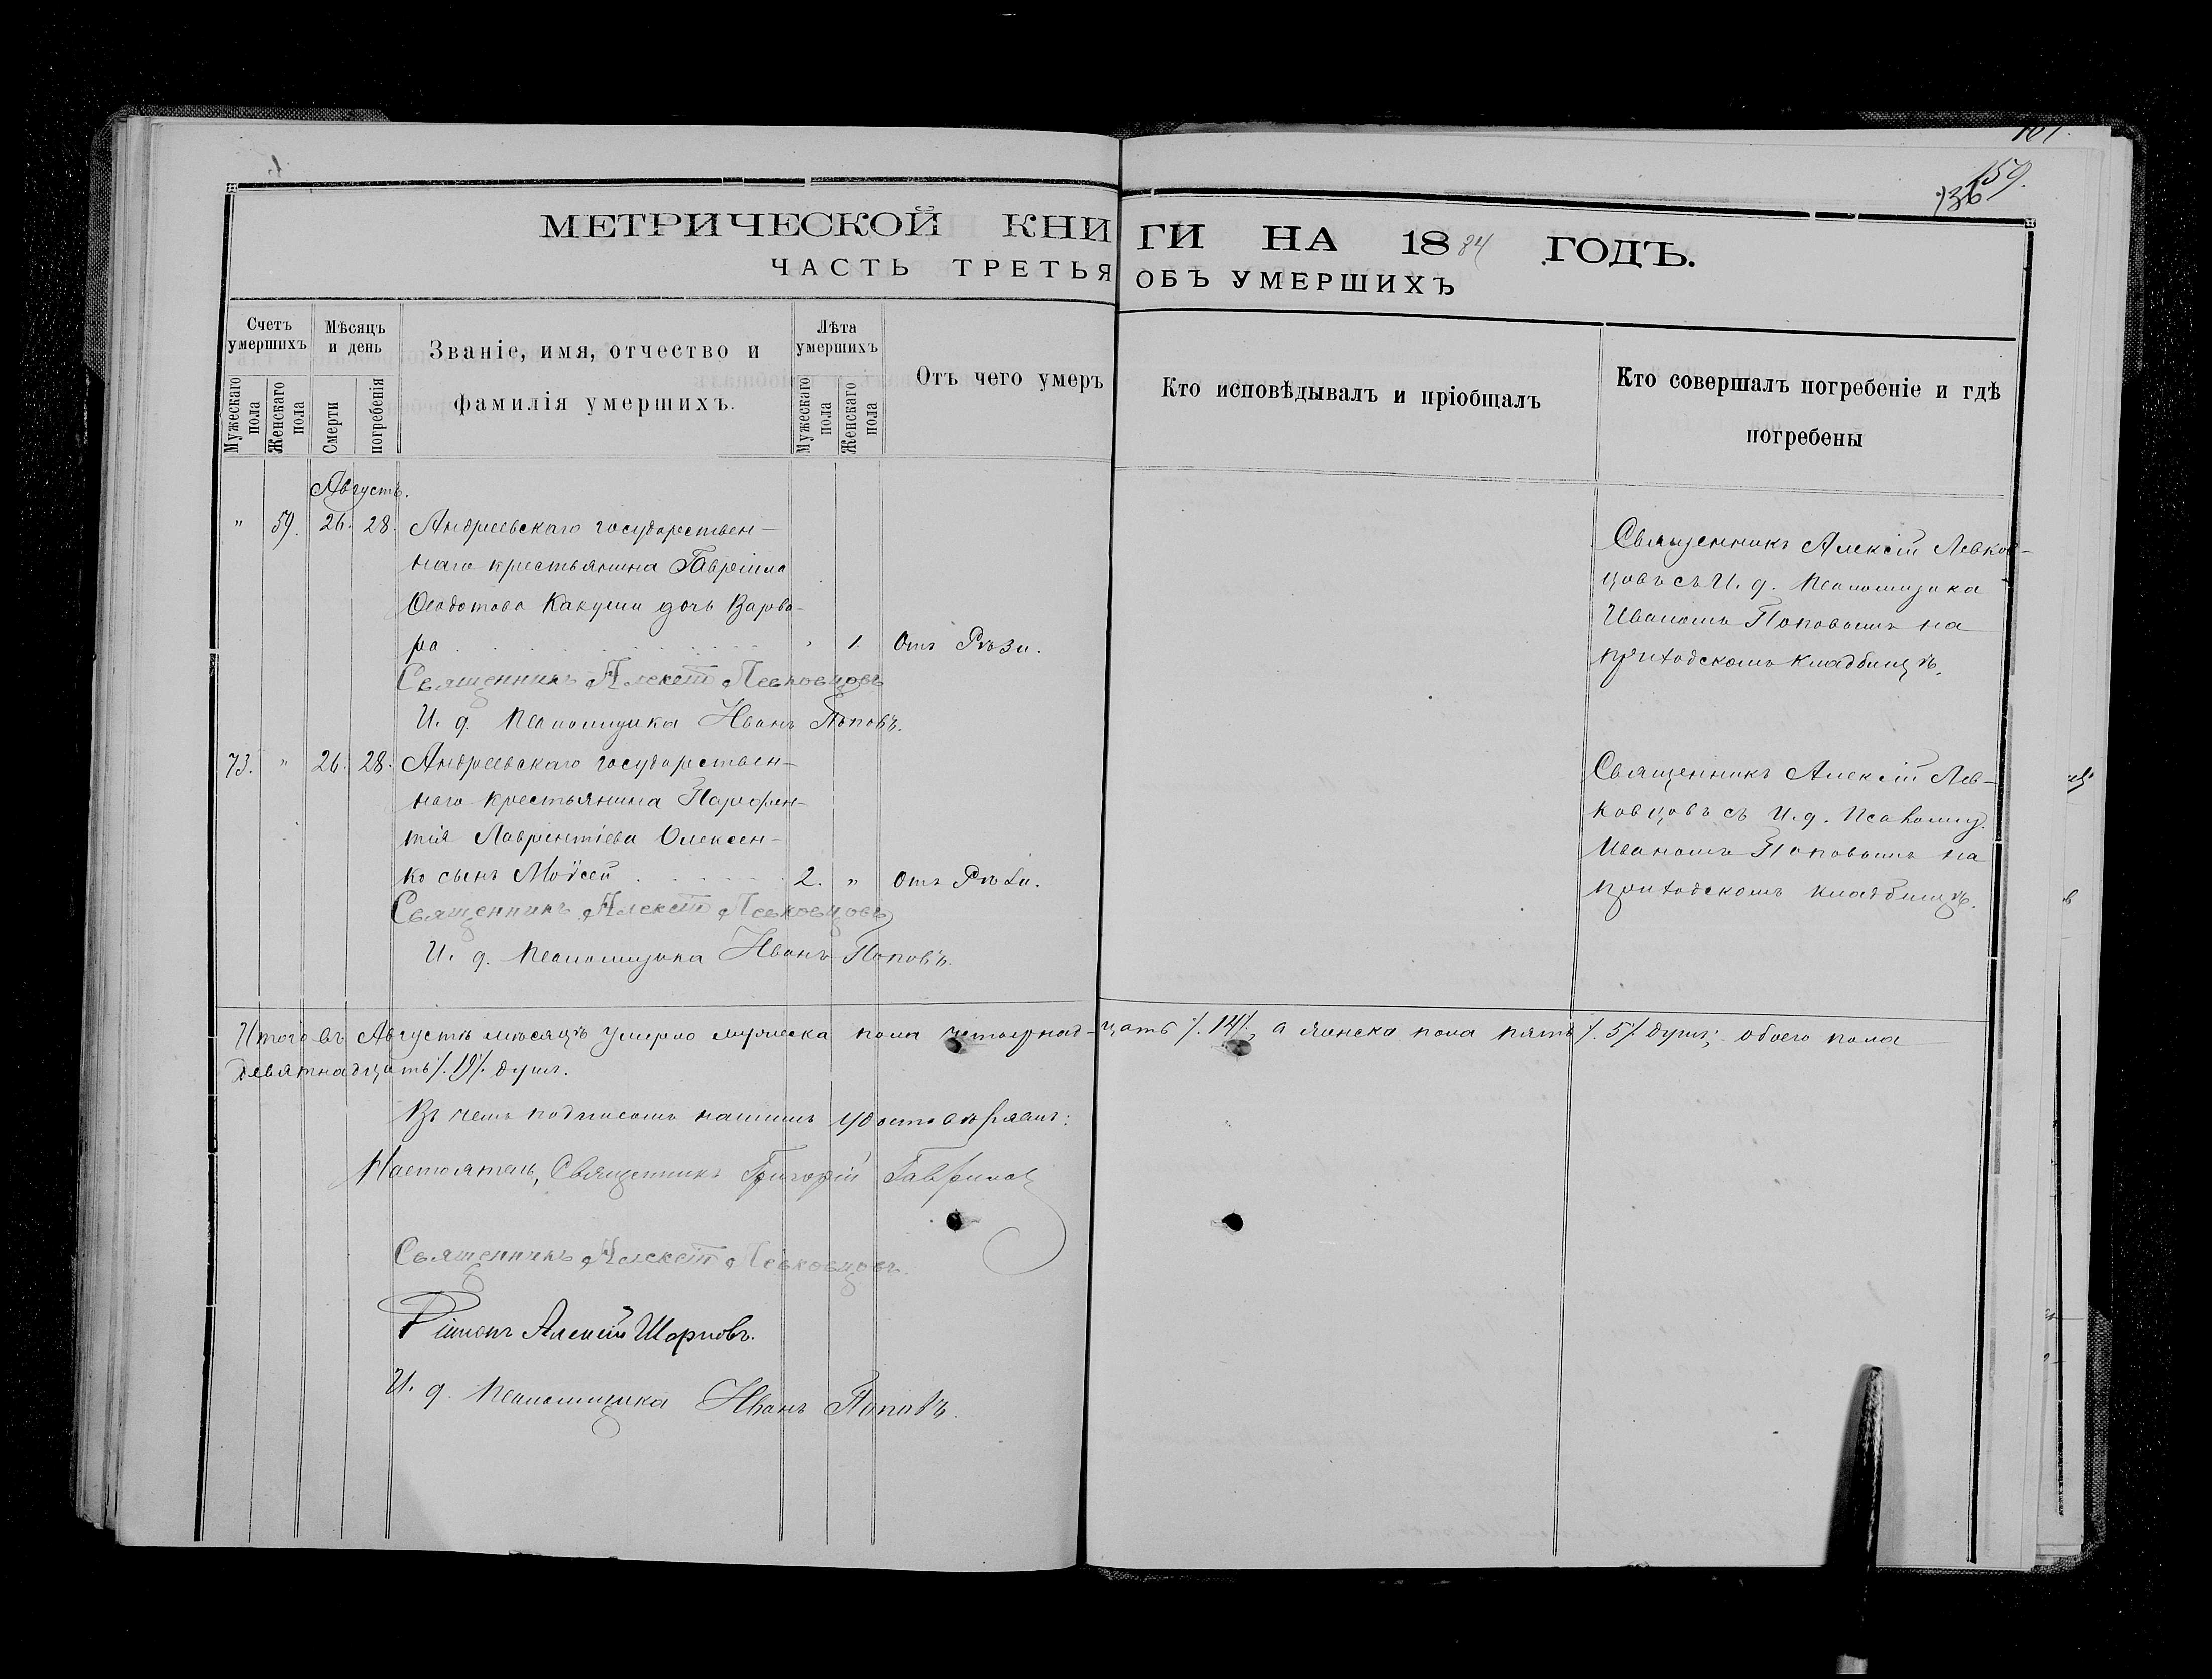 159.
136
МЕТРИЧЕСКОЙ КНИГИ НА 1884 ГОДЪ.
ЧАСТЬ ТРЕТЬЯ ОБЪ УМЕРШИХЪ
Счетъ умершихъ
Мужескаго пола
Женскаго пола
Мѣсяцъ и день
Смерти
погребенія
Званіе, имя, отчество и
фамилія умершихъ.
Лѣта умершихъ
Мужескаго пола
Женскаго пола
Отъ чего умеръ
Кто исповѣдывалъ и пріобщалъ
Кто совершалъ погребеніе и гдѣ
погребены
Августъ.
" 59. 26. 28. Андреевскаго государствен-
наго крестьянина Гавріила
Ѳеодотова Какуши дочь Варва-
ра " 1. Отъ Рѣзи.
Священникъ Алексій Левковцовъ
И. д. Псаломщика Иванъ Поповъ.
Священникъ Алексій Левков-
цовъ съ И. д. Псаломщика
Иваномъ Поповымъ на
приходскомъ кладбищѣ.
73. " 26. 28. Андреевскаго государствен-
наго крестьянина Парфен-
тія Лаврентіева Олексен-
ко сынъ Моѵсей 2. " Отъ Рѣзи.
Священникъ Алексій Левковцовъ
И. д. Псаломщика Иванъ Поповъ.
Священникъ Алексій Лев-
ковцовъ съ И. д. Псаломщ.
Иваномъ Поповымъ на
приходскомъ кладбищѣ.
Итого въ Августѣ мѣсяцѣ умерло мужеска пола четырнад-цать /. 14 /., а женска пола пять /. 5 /. душъ; обоего пола
девятнадцать /. 19 /. душъ.
Въ чемъ подписомъ нашимъ удостовѣряемъ:
Настоятель, Священникъ Григорій
Священникъ Алексій Левковцовъ
Діаконъ Алексій Шорповъ.
И. д. Псаломщика Иванъ Поповъ.